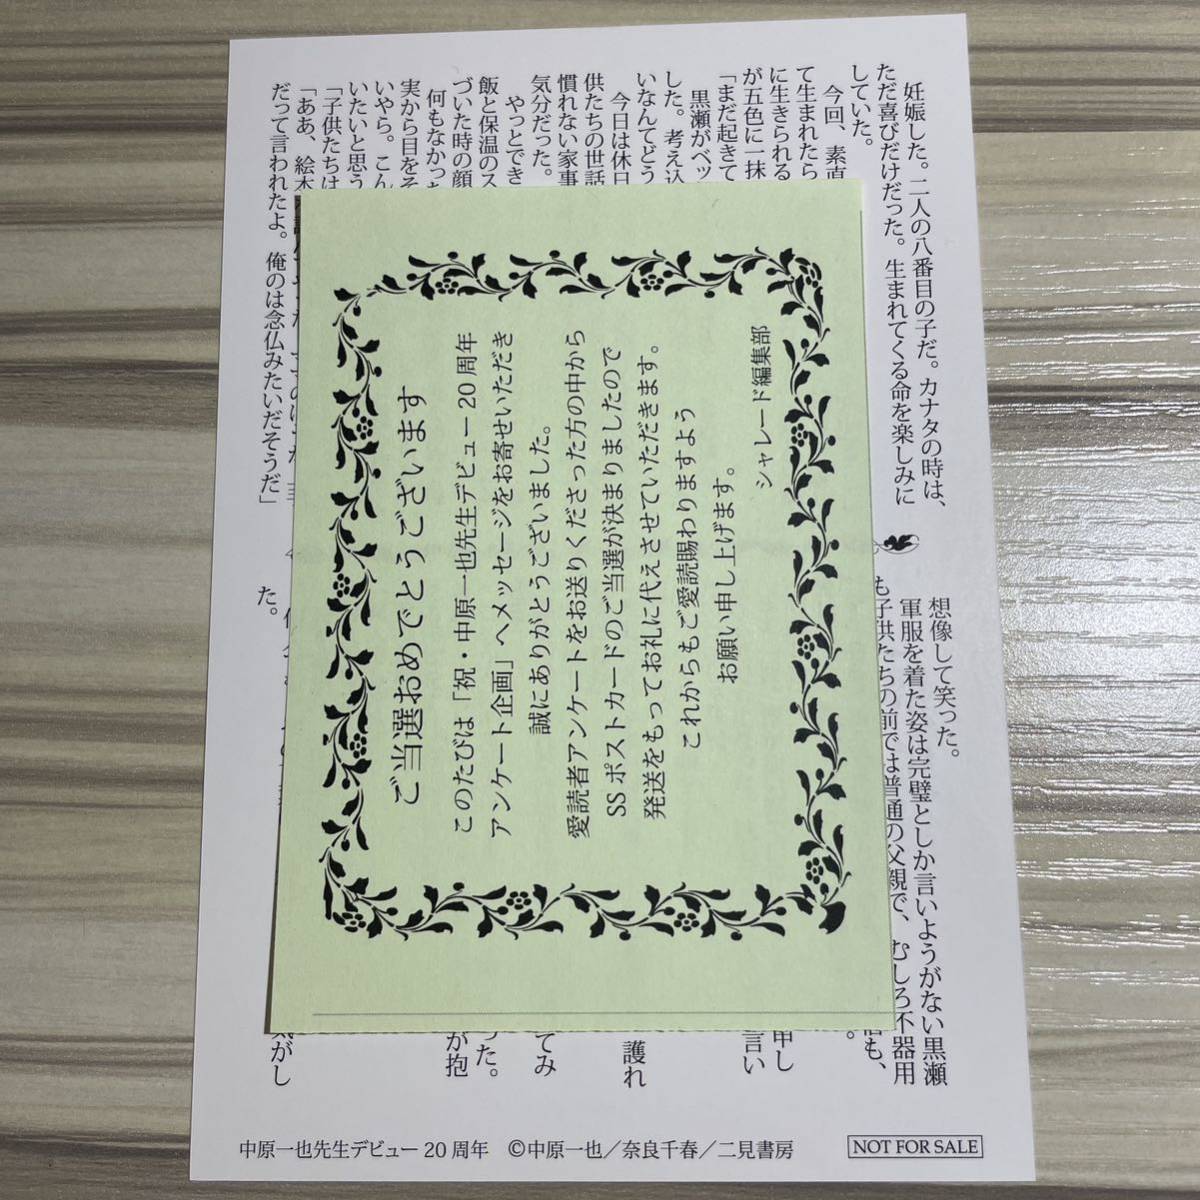 妊娠した。二人の八番目の子だ。カナタの時は、
ただ喜びだけだった。生まれてくる命を楽しみに
していた。
今回、素直
て生まれたら
に生きられる
が五色に一抹
「まだ起きて
黒瀬がベッ
した。考え込
いなんてどう
今日は休日
供たちの世話
慣れない家事
気分だった。
やっとでき
飯と保温のス
づいた時の顔
何もなかっ
実から目をそ
いやら。こん
いたいと思う
「子供たちは
「ああ、絵本
だって言われたよ。俺のは念仏みたいだそうだ」
想像して笑った。
軍服を着た姿は完璧としか言いようがない黒瀬
も子供たちの前では普通の父親で、むしろ不器用
申し
言い
護れ
てみ
った。
が抱
気がし
た。
ご当選おめでとうございます
このたびは「祝・中原一也先生デビュー 20 周年
アンケート企画」へメッセージをお寄せいただき
誠にありがとうございました。
愛読者アンケートをお送りくださった方の中から
SS ポストカードのご当選が決まりましたので
発送をもってお礼に代えさせていただきます。
これからもご愛読賜わりますよう
お願い申し上げます。
シャレード編集部
中原一也先生デビュー 20 周年 ©中原一也／奈良千春／二見書房
NOT FOR SALE